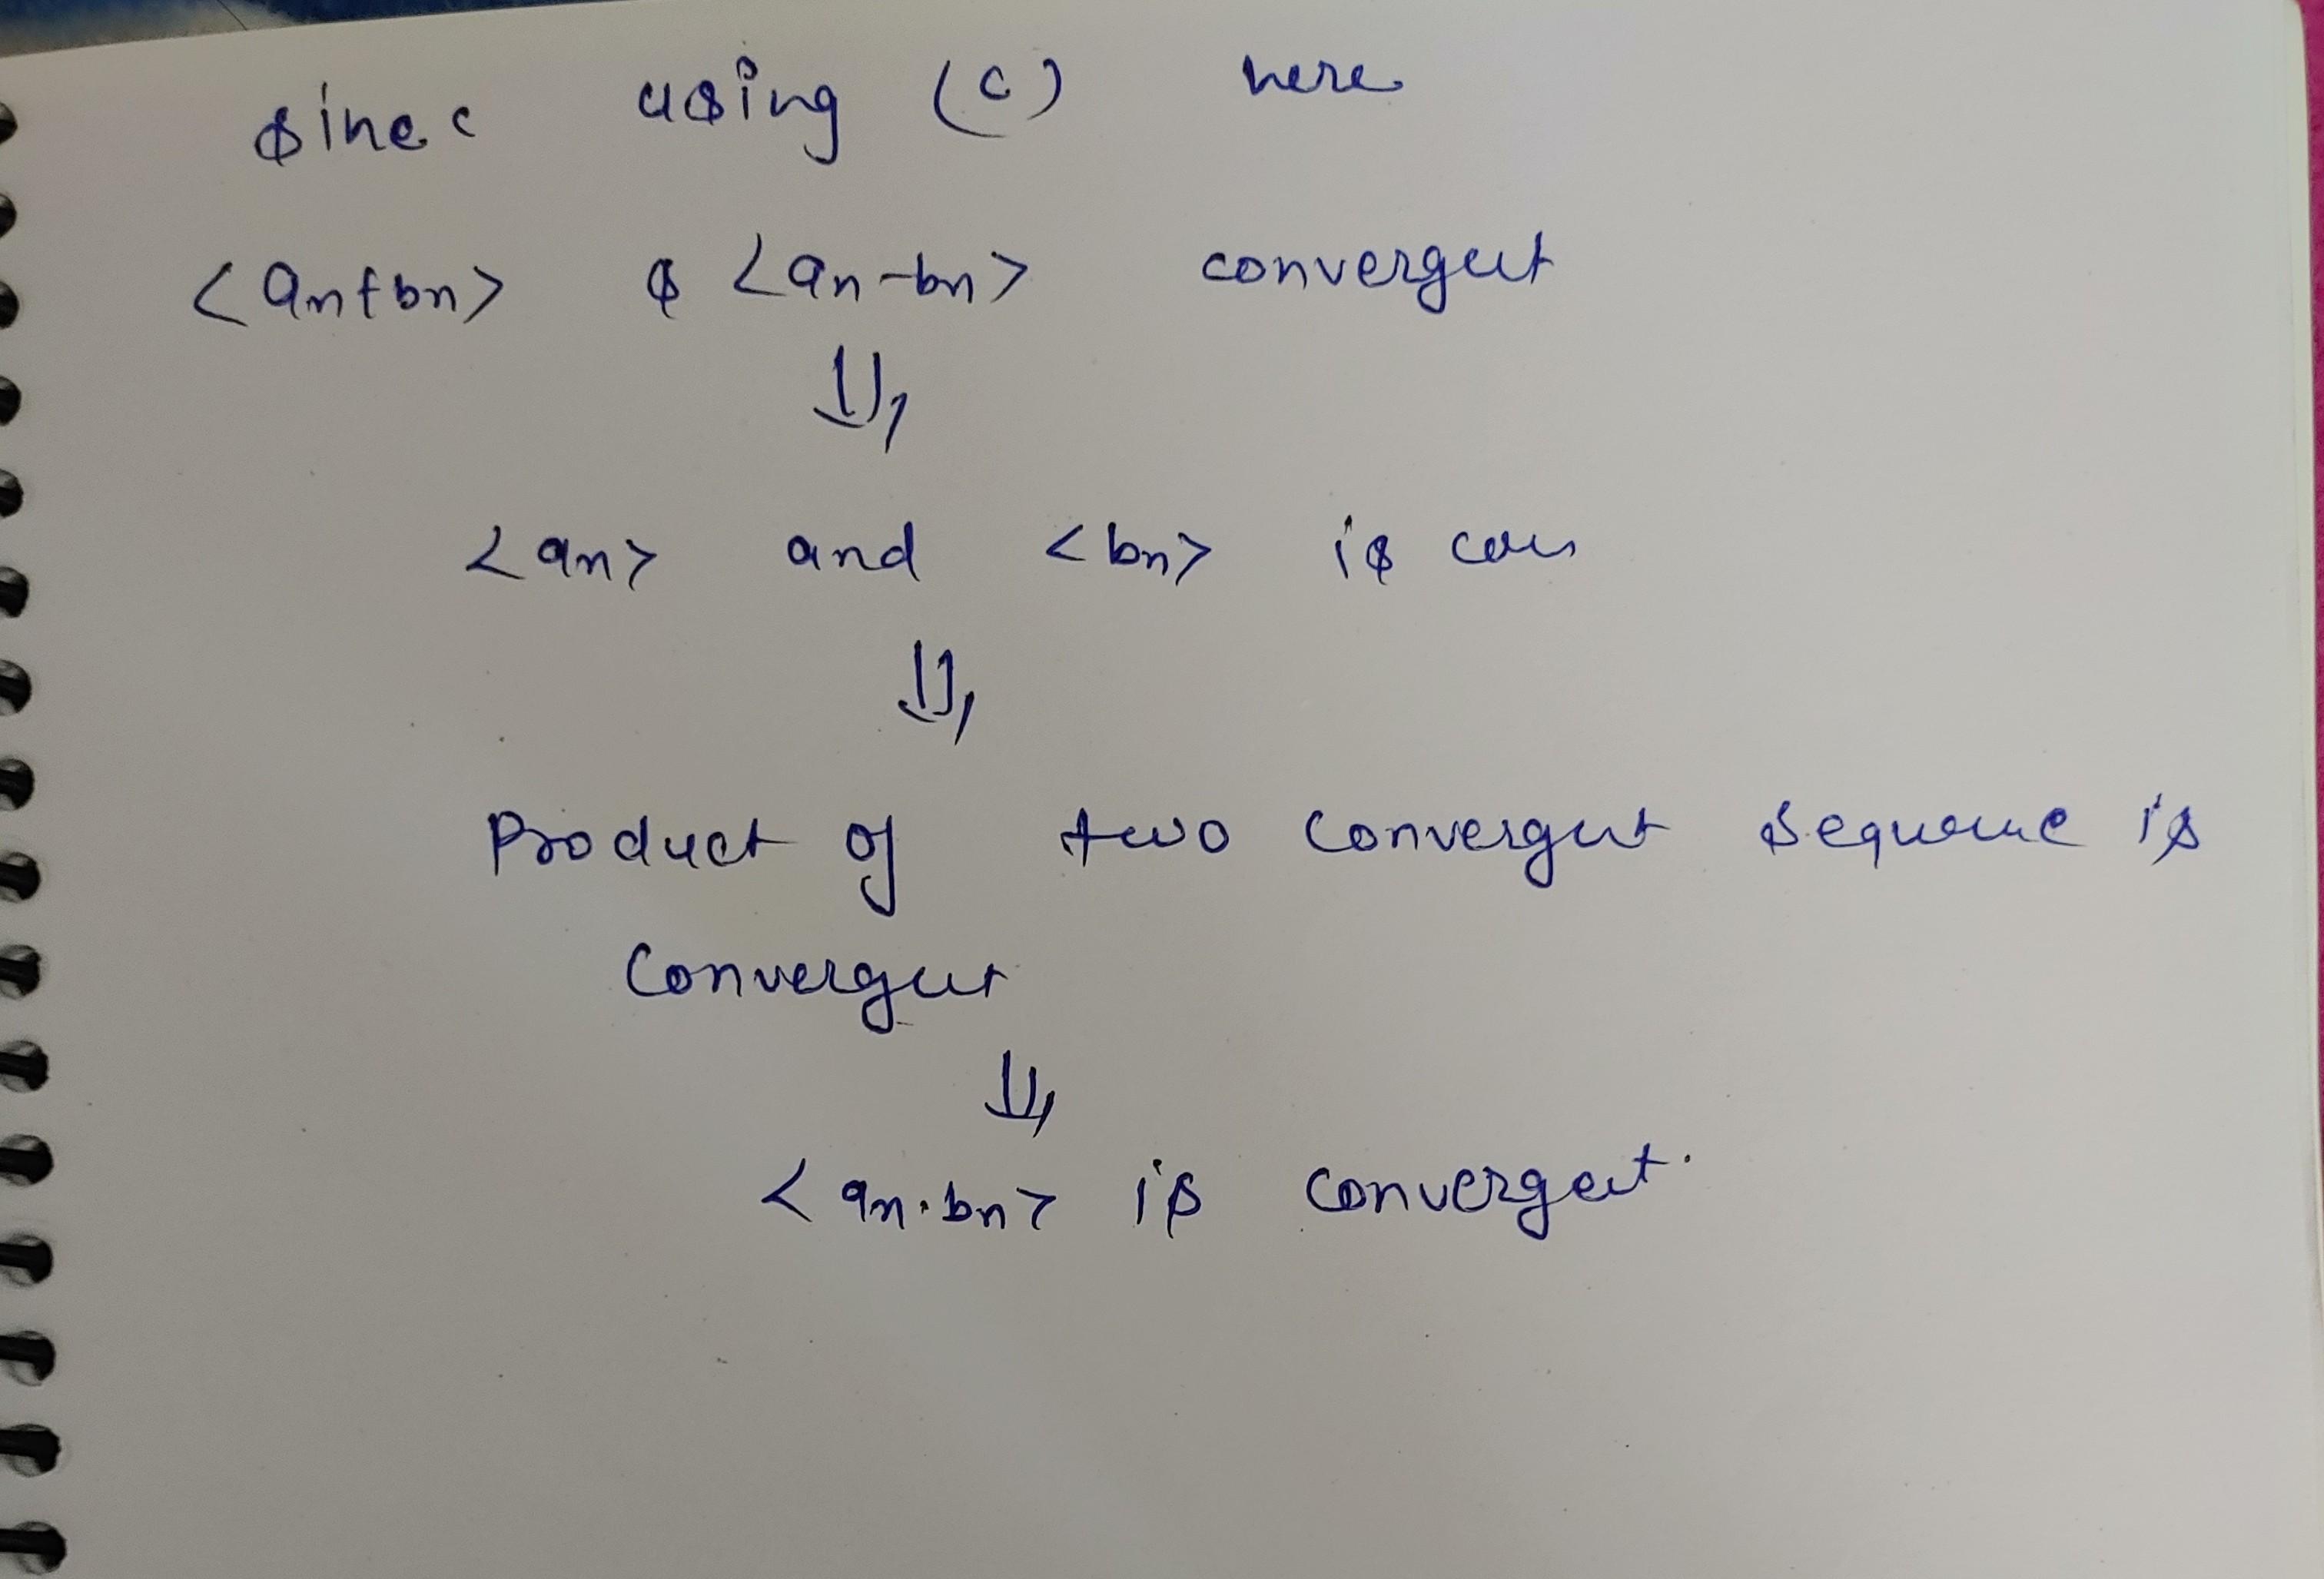 since using (c) here
<an+bn> & <an-bn> convergent
⇓
<an> and <bn> is con
⇓
Product of two convergent sequence is
convergent
⇓
<an.bn> is convergent.